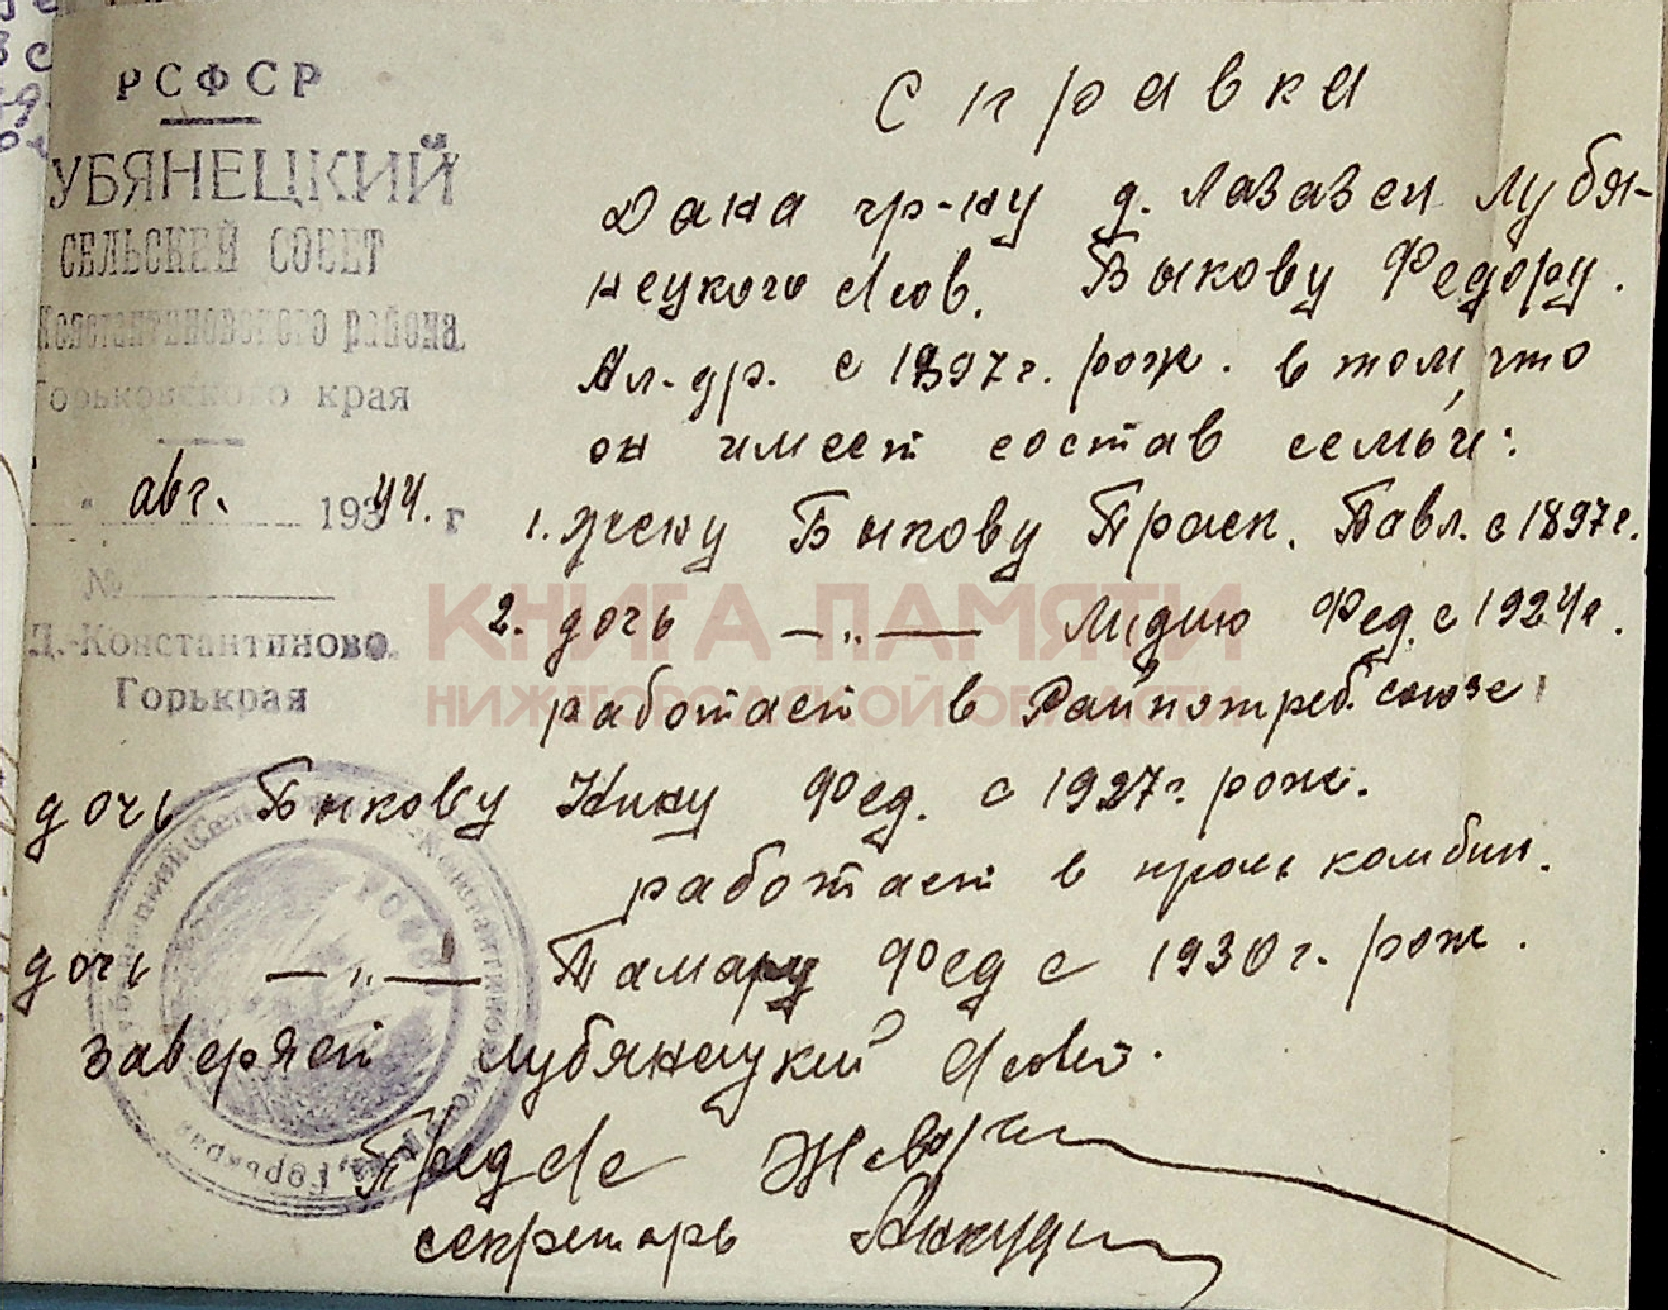 РСФСР
УБЯНЕЦКИЙ
СЕЛЬСКИЙ СОВЕТ
Константиновского района
Горьковского края
" авг. 1944. г
№
Д.-Константиново.
Горькрая
Справка
Дана гр-ну д. Лазазеи Лубя-
нецкого с/сов. Быкову Федору.
Ал-др. с 1897г. рож. в том, что
он имеет состав семьи:
1. жену Быкову Праск. Павл. с 1897г.
2. дочь —„— Лидию Фед. с 1924г.
работает в Райпотреб. союзе
дочь Быкову Нину Фед. с 1927г. рож.
работает в пром комбин.
дочь —„— Тамару Фед с 1930г. рож.
заверяет Лубянецкий с/совет.
Пред с/с
секретарь
КНИГА ПАМЯТИ
НИЖЕГОРОДСКОЙ ОБЛАСТИ